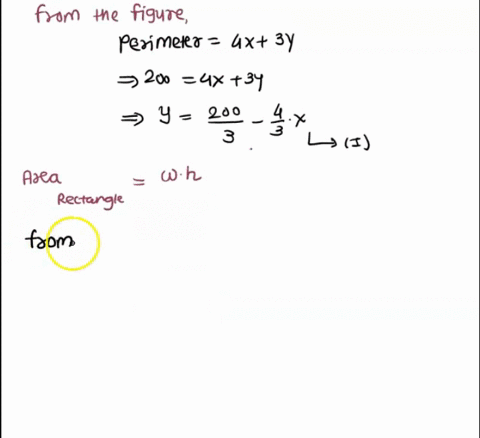 from the figure,
Perimeter = 4x + 3y
⇒ 200 = 4x + 3y
⇒ y = 200/3 - 4/3 · x
↳ (I)
Area Rectangle = w·h
from